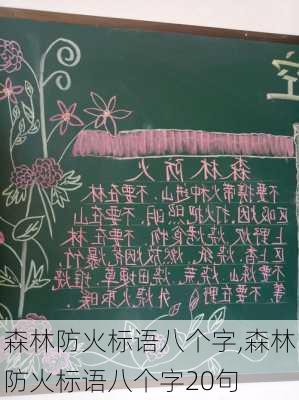 森林防火
不要携带火种进山,不要在林
区吸烟,打把照明,不要在山
上野炊,烧烤食物,不要在林
区上香,烧纸,燃放烟花爆竹,
不要炼山,烧荒,烧田埂草,堆烧
等 不要在野
外烧火取暖.
森林防火标语八个字,森林
防火标语八个字20句